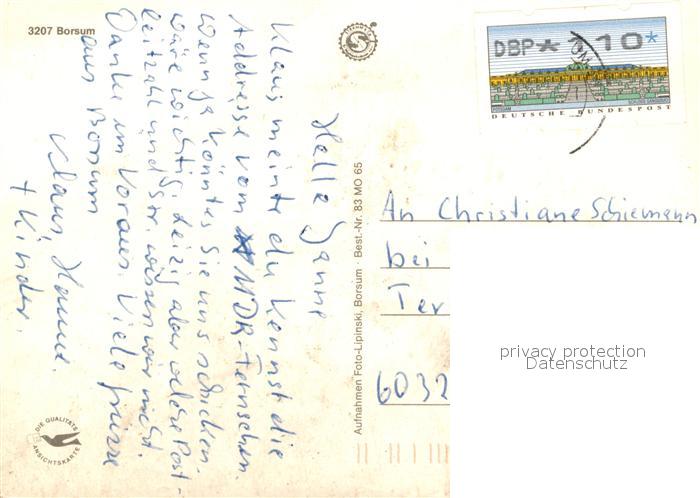 3207 Borsum
Hallo Janne
Klaus meinte du kennst die
Addresse vom MDR-Fernsehen.
Wenn ja könntes Sie uns schicken.
wäre wichtig. Leizig aber welche Post-
leitzahl und Str. wissen wir nicht.
Danke im Voraus. Viele grüsse
aus Borsum
Klaus, Hanne.
+ Kinder.
DIE QUALITÄTS
ANSICHTSKARTE
Aufnahmen Foto-Lipinski, Borsum · Best.-Nr. 83 MO 65
DBP * 110*
POTSDAM SCHLOSS SANSSOUCI
DEUTSCHE BUNDESPOST
An Christiane Schiemann
bei
Ter
6032
privacy protection
Datenschutz